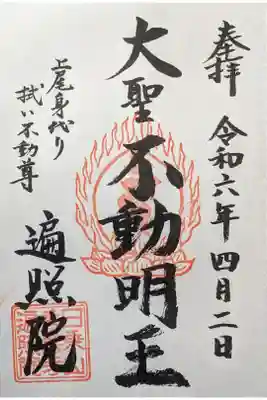 奉拝 令和六年四月二日
大聖不動明王
上尾身代り
拭い不動尊
遍照院